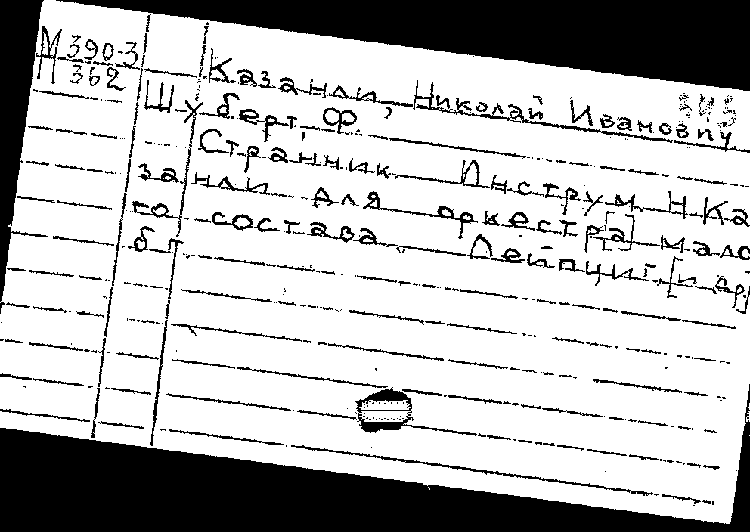 М 390-3
П 362
Казанли, Николай Иванович
Шуберт, Ф.
Странник. Инструм. Н. Ка
занли для оркестр[а] мало
го состава. Лейпциг, [и др]
б. г.